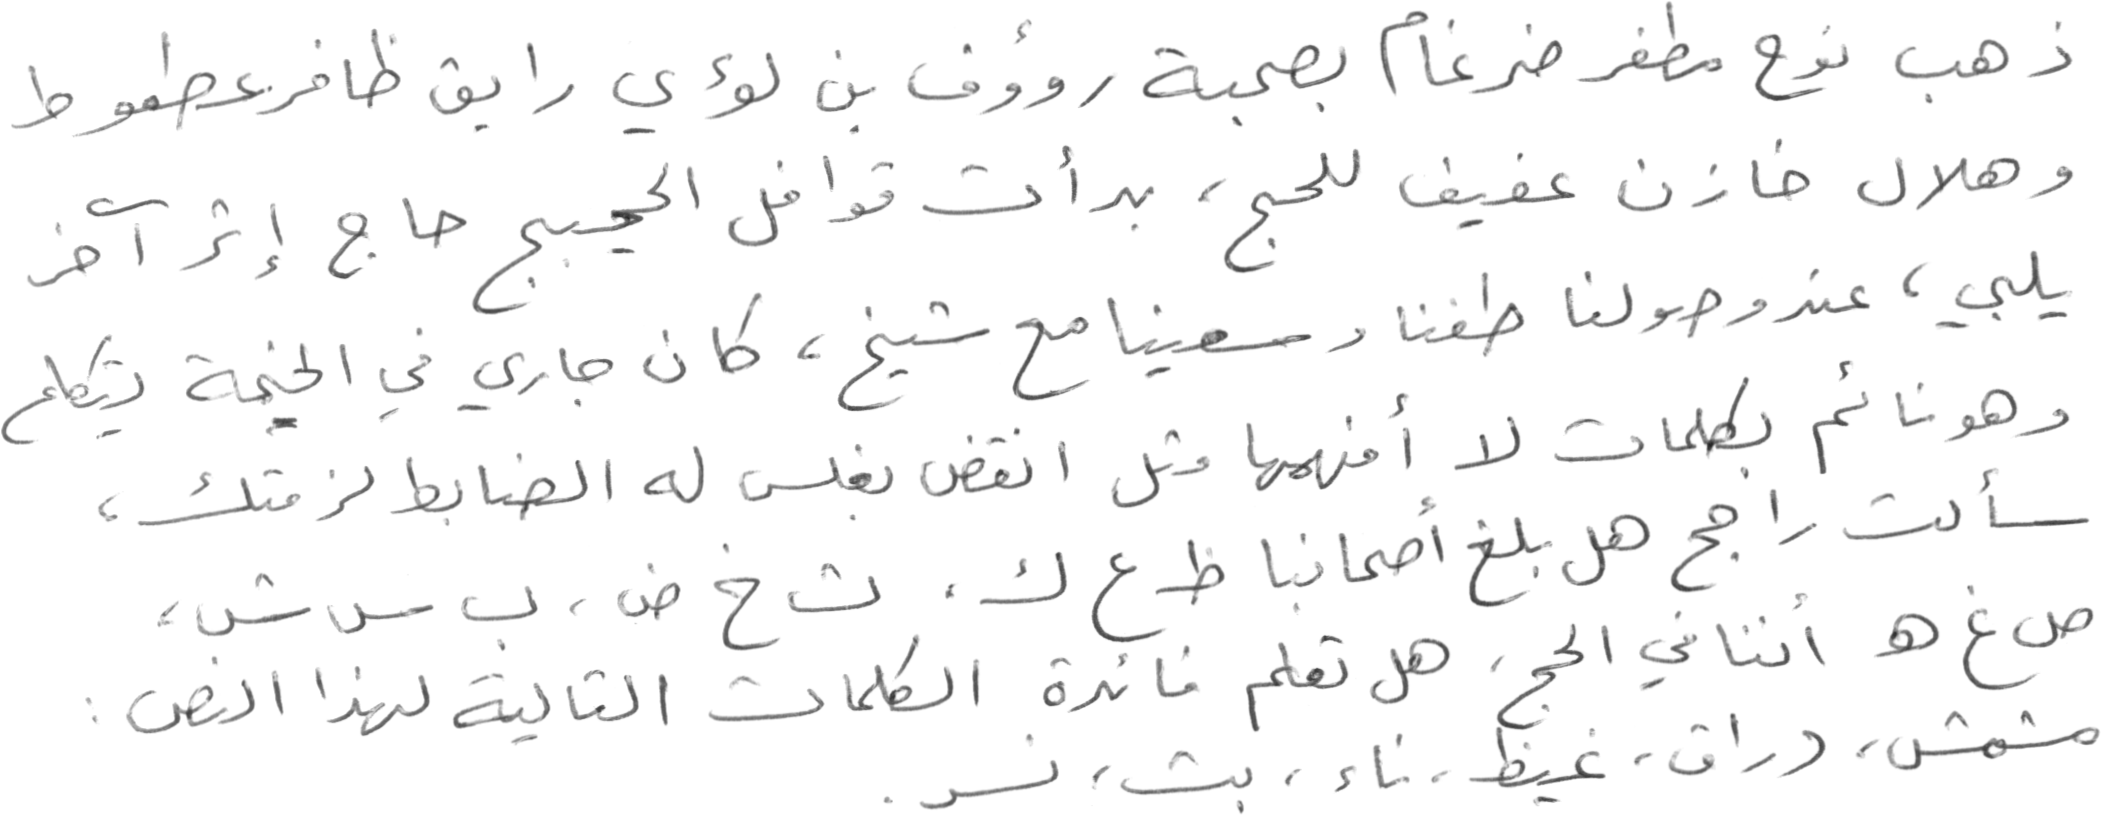 ذهب نوح مظفر ضرغام بصحبة رؤوف بن لؤي رايق ظافر عطعوط
وهلال خازن عفيف للحج، بدأت قوافل الحجيج حاج إثر آخر
يلبي، عند وصولنا طفنا وسعينا مع شيخ، كان جاري في الخيمة يتكلم
وهو نائم بكلمات لا أفهمها مثل انقض بغلس له الضابط لزمتك،
سألت راجح هل بلغ أصحابنا ظ ع ك، ث خ ض، ب س ش،
ص غ ه أننا في الحج، هل تعلم فائدة الكلمات التالية لهذا النص:
مشمش، دراق، غيظ، ناء، بث، نسر.